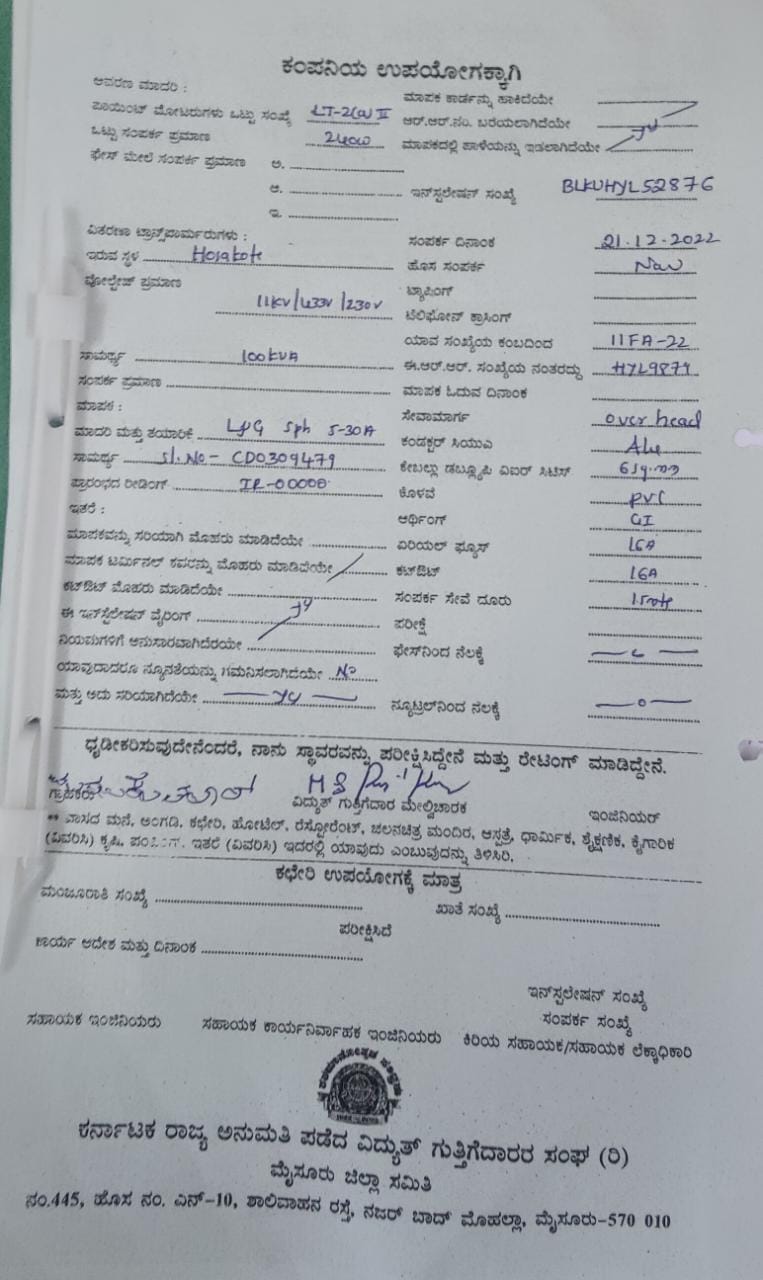 ಕಂಪನಿಯ ಉಪಯೋಗಕ್ಕಾಗಿ
ಆವರಣ ಮಾದರಿ :
ಮಾಪಕ ಕಾರ್ಡನ್ನು ಹಾಕಿದೆಯೇ
ಪಾಯಿಂಟ್ ಮೋಟರುಗಳು ಒಟ್ಟು ಸಂಖ್ಯೆ LT-2(a) II
ಆರ್.ಆರ್.ನಂ. ಬರೆಯಲಾಗಿದೆಯೇ
ಒಟ್ಟು ಸಂಪರ್ಕ ಪ್ರಮಾಣ 240W
ಮಾಪಕದಲ್ಲಿ ಹಾಳೆಯನ್ನು ಇಡಲಾಗಿದೆಯೇ
ಫೇಸ್ ಮೇಲೆ ಸಂಪರ್ಕ ಪ್ರಮಾಣ ಅ.
ಆ. ಇನ್‌ಸ್ಟಲೇಷನ್ ಸಂಖ್ಯೆ BLKUHYL52876
ಇ.
ವಿತರಣಾ ಟ್ರಾನ್ಸ್‌ಫಾರ್ಮರುಗಳು :
ಸಂಪರ್ಕ ದಿನಾಂಕ 21.12.2022
ಇರುವ ಸ್ಥಳ Hosakote
ಹೊಸ ಸಂಪರ್ಕ New
ವೋಲ್ಟೇಜ್ ಪ್ರಮಾಣ 11KV/433V/230V
ಟ್ಯಾಪಿಂಗ್
ಟೆಲಿಫೋನ್ ಕ್ರಾಸಿಂಗ್
ಯಾವ ಸಂಖ್ಯೆಯ ಕಂಬದಿಂದ 11FA-22
ಸಾಮರ್ಥ್ಯ 100KVA
ಈ.ಆರ್.ಆರ್. ಸಂಖ್ಯೆಯ ನಂತರದ್ದು HYL9879
ಸಂಪರ್ಕ ಪ್ರಮಾಣ
ಮಾಪಕ ಓದುವ ದಿನಾಂಕ
ಮಾಪಕ :
ಸೇವಾಮಾರ್ಗ over head
ಮಾದರಿ ಮತ್ತು ತಯಾರಿಕೆ L&G Sph 5-30A
ಕಂಡಕ್ಟರ್ ಸಿಯುಎ
ಸಾಮರ್ಥ್ಯ Sl.No- CD0309479
ಕೇಬಲ್ಲು ಡಬ್ಲ್ಯೂಪಿ ಎಐರ್ ಸಿಟಿಸ್ 6sq.mm
ಪ್ರಾರಂಭದ ರೀಡಿಂಗ್ IR-00000
ಕೊಳವೆ PVC
ಇತರೆ :
ಆರ್ಥಿಂಗ್ GI
ಮಾಪಕವನ್ನು ಸರಿಯಾಗಿ ಮೊಹರು ಮಾಡಿದೆಯೇ
ಏರಿಯಲ್ ಫ್ಯೂಸ್ 16A
ಮಾಪಕ ಟರ್ಮಿನಲ್ ಕವರನ್ನು ಮೊಹರು ಮಾಡಿದೆಯೇ
ಕಟ್‌ಔಟ್ 16A
ಕಟ್‌ಔಟ್ ಮೊಹರು ಮಾಡಿದೆಯೇ
ಸಂಪರ್ಕ ಸೇವೆ ದೂರು
ಈ ಇನ್‌ಸ್ಟಲೇಷನ್ ವೈರಿಂಗ್
ಪರೀಕ್ಷೆ
ನಿಯಮಗಳಿಗೆ ಅನುಸಾರವಾಗಿದೆರಯೇ
ಫೇಸ್‌ನಿಂದ ನೆಲಕ್ಕೆ
ಯಾವುದಾದರೂ ನ್ಯೂನತೆಯನ್ನು ಗಮನಿಸಲಾಗಿದೆಯೇ No
ಮತ್ತು ಅದು ಸರಿಯಾಗಿದೆಯೇ
ನ್ಯೂಟ್ರಲ್‌ನಿಂದ ನೆಲಕ್ಕೆ
ಧೃಡೀಕರಿಸುವುದೇನೆಂದರೆ, ನಾನು ಸ್ಥಾವರವನ್ನು ಪರೀಕ್ಷಿಸಿದ್ದೇನೆ ಮತ್ತು ರೇಟಿಂಗ್ ಮಾಡಿದ್ದೇನೆ.
ಗ್ರಾಹಕರು ವಿದ್ಯುತ್ ಗುತ್ತಿಗೆದಾರ ಮೇಲ್ವಿಚಾರಕ ಇಂಜಿನಿಯರ್
** ವಾಸದ ಮನೆ, ಅಂಗಡಿ, ಕಛೇರಿ, ಹೋಟೆಲ್, ರೆಸ್ಟೋರೆಂಟ್, ಚಲನಚಿತ್ರ ಮಂದಿರ, ಆಸ್ಪತ್ರೆ, ಧಾರ್ಮಿಕ, ಶೈಕ್ಷಣಿಕ, ಕೈಗಾರಿಕ
(ವಿವರಿಸಿ) ಕೃಷಿ, ಇತರೆ (ವಿವರಿಸಿ) ಇದರಲ್ಲಿ ಯಾವುದು ಎಂಬುವುದನ್ನು ತಿಳಿಸಿರಿ.
ಕಛೇರಿ ಉಪಯೋಗಕ್ಕೆ ಮಾತ್ರ
ಮಂಜೂರಾತಿ ಸಂಖ್ಯೆ
ಖಾತೆ ಸಂಖ್ಯೆ
ಪರೀಕ್ಷಿಸಿದೆ
ಕಾರ್ಯ ಆದೇಶ ಮತ್ತು ದಿನಾಂಕ
ಇನ್‌ಸ್ಟಲೇಷನ್ ಸಂಖ್ಯೆ
ಸಂಪರ್ಕ ಸಂಖ್ಯೆ
ಸಹಾಯಕ ಇಂಜಿನಿಯರು ಸಹಾಯಕ ಕಾರ್ಯನಿರ್ವಾಹಕ ಇಂಜಿನಿಯರು ಕಿರಿಯ ಸಹಾಯಕ/ಸಹಾಯಕ ಲೆಕ್ಕಾಧಿಕಾರಿ
ಕರ್ನಾಟಕ ರಾಜ್ಯ ಅನುಮತಿ ಪಡೆದ ವಿದ್ಯುತ್ ಗುತ್ತಿಗೆದಾರರ ಸಂಘ (ರಿ)
ಮೈಸೂರು ಜಿಲ್ಲಾ ಸಮಿತಿ
ನಂ.445, ಹೊಸ ನಂ. ಎನ್-10, ಶಾಲಿವಾಹನ ರಸ್ತೆ, ನಜರ್ ಬಾದ್ ಮೊಹಲ್ಲಾ, ಮೈಸೂರು-570 010